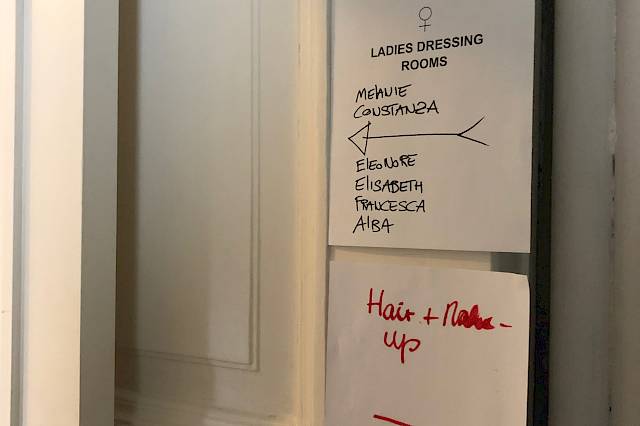 LADIES DRESSING
ROOMS
MELANIE
CONSTANZA
ELEONORE
ELISABETH
FRANCESCA
ALBA
Hair + Make-
up